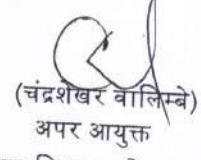 (चंद्रशेखर वालिम्बे)
अपर आयुक्त